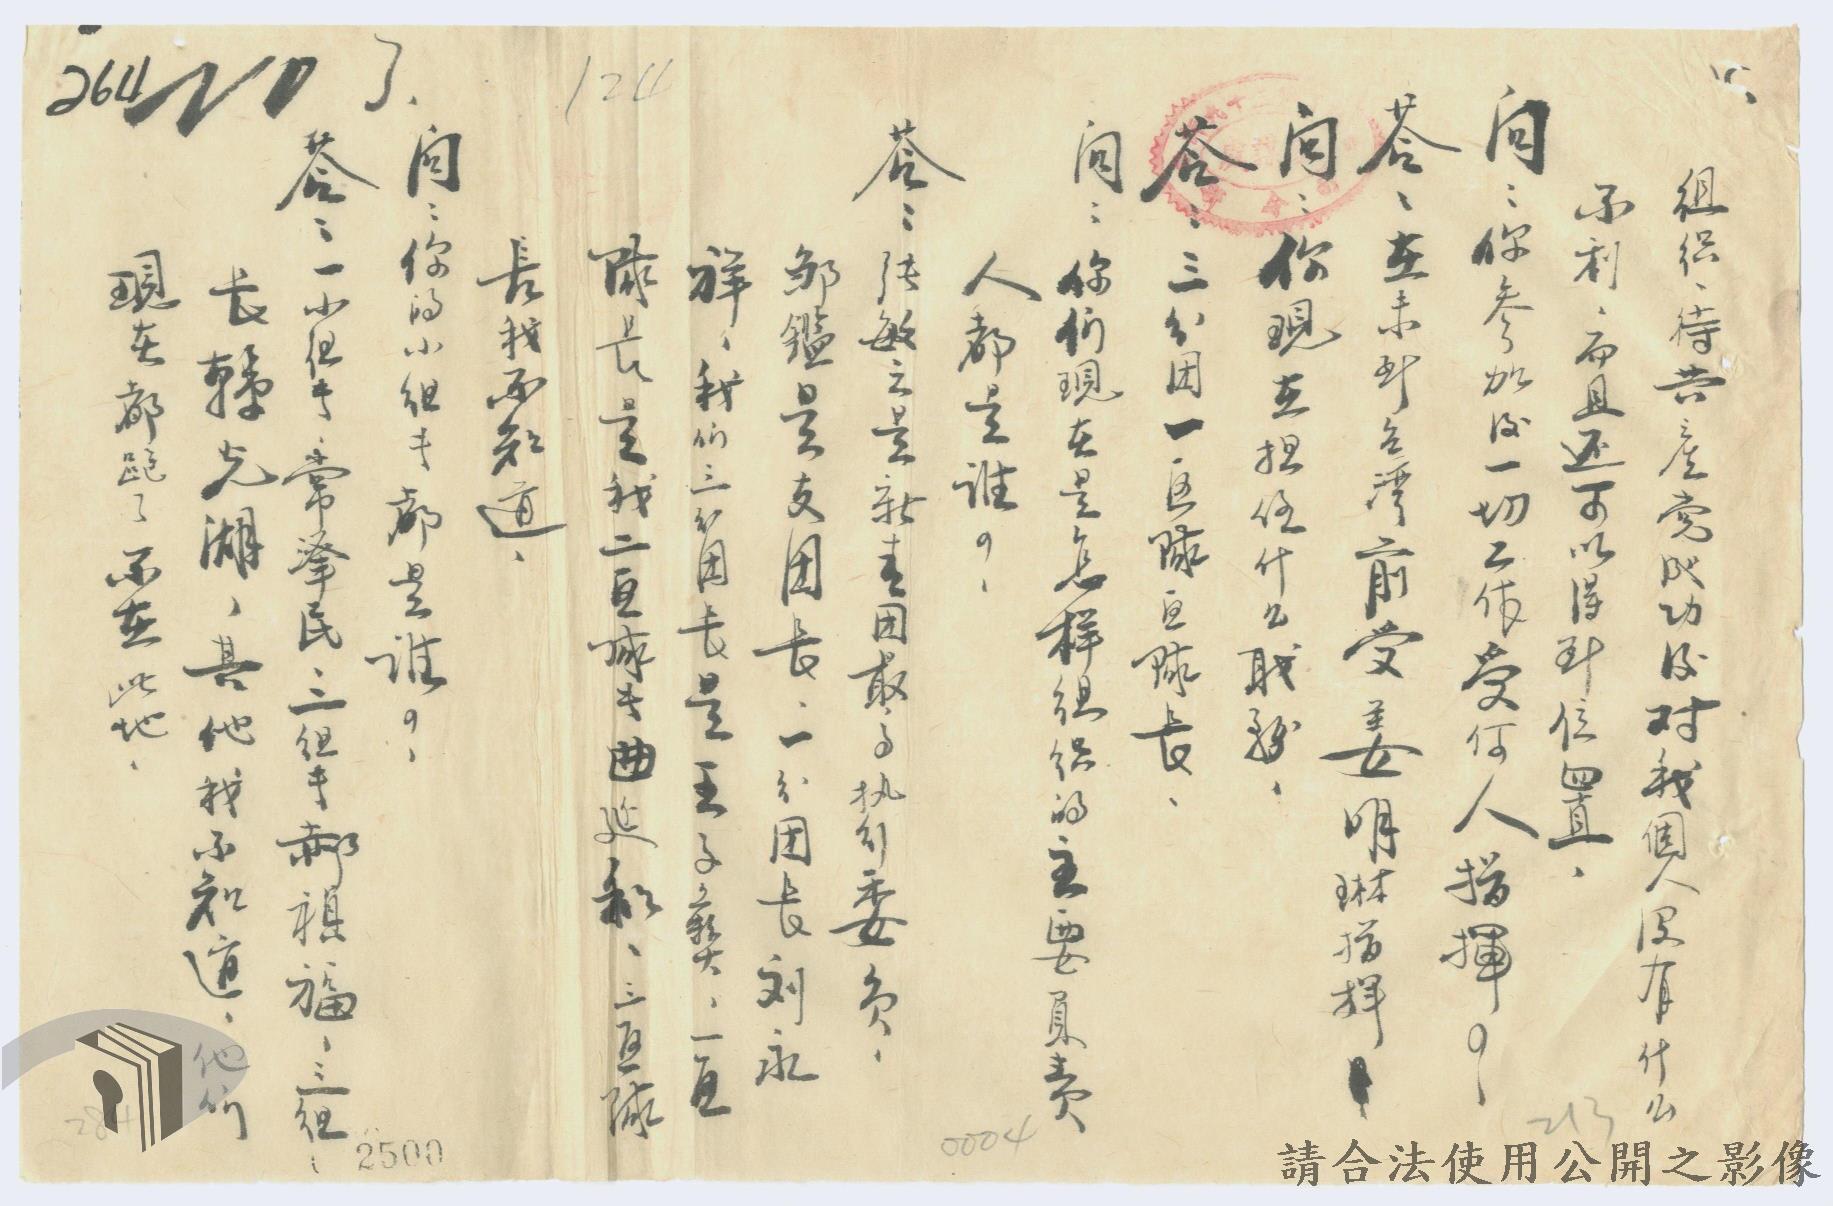 264
124
組织、待共产党成功後对我個人没有什么
不利、而且还可以得到位置、
问：你参加後一切工作受何人指揮？
答：在未到台湾前受姜明琳指揮
问：你現在担任什么职務、
答：三分团一区隊区隊长、
问：你们現在是怎样组织的主要負责
人都是谁？
答：张敏之是新青团最高执行委员、
邹鑑是支团长、一分团长刘永
祥、我们三分团长是王子彝、一区
隊长是我二区隊长曲延和、三区隊
长我不知道、
问：你的小组长都是谁？
答：一小组长常肇民、二组长郝祖福、三组
长韓克湖、其他我不知道、他们
現在都跑了不在此地、
213
0004
2500
284
請合法使用公開之影像